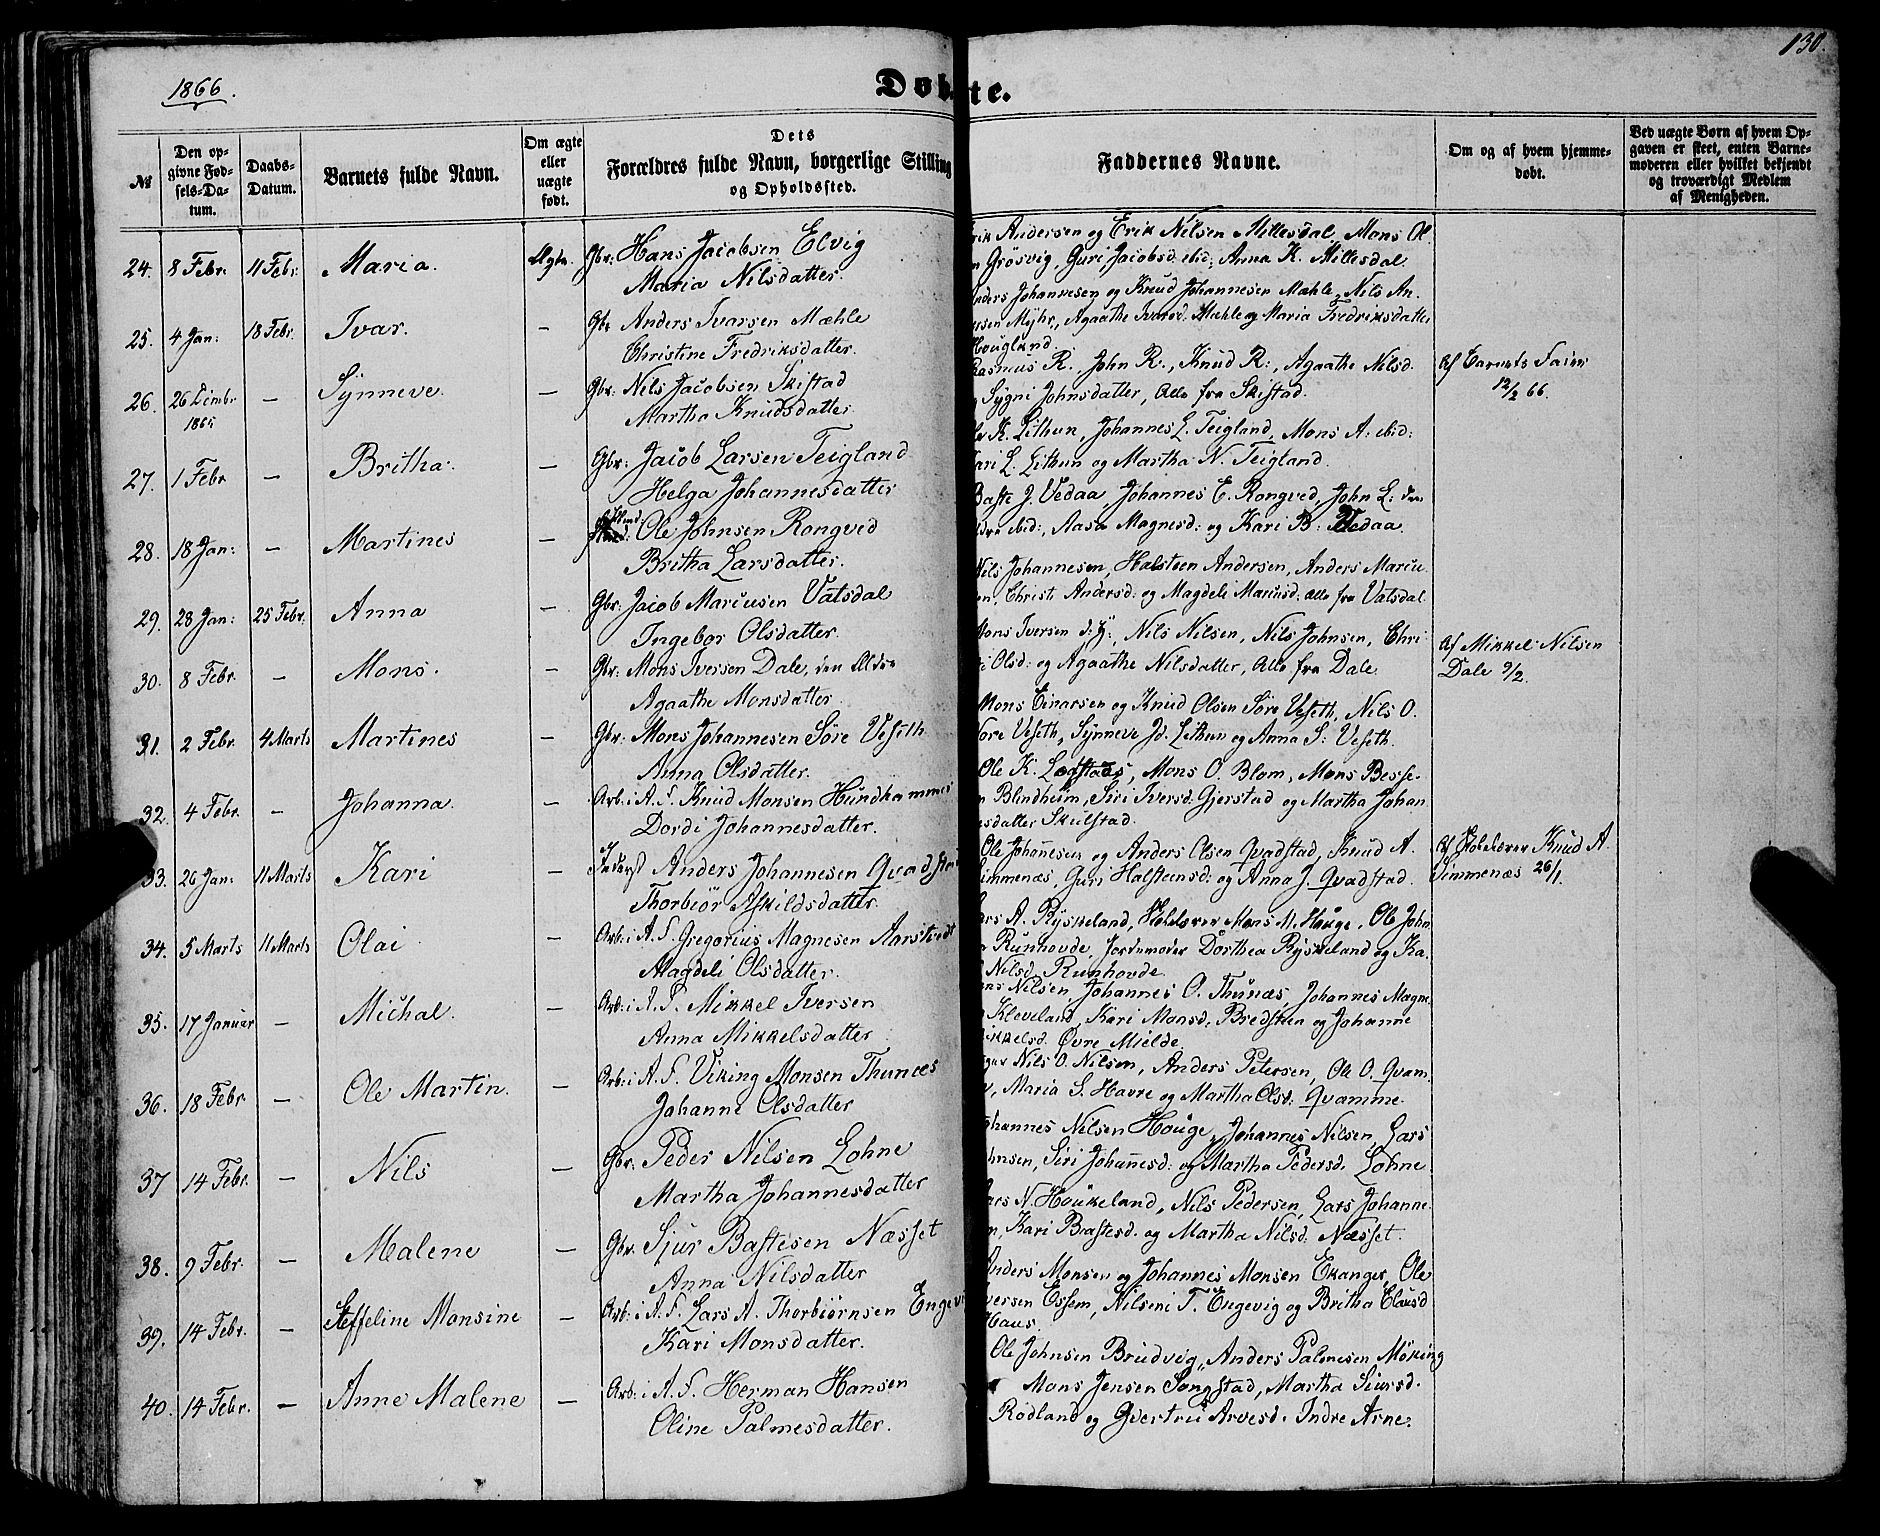 1866.
Døbte.
130.
№
Den op-
givne Fød-
sels-Da-
tum.
Daabs-
Datum.
Barnets fulde Navn.
Om ægte
eller
uægte
født.
Dets
Forældres fulde Navn, borgerlige Stilling
og Opholdssted.
Faddernes Navne.
Om og af hvem hjemme-
døbt.
Ved uægte Børn af hvem Op-
gaven er skeet, enten Barne-
moderen eller hvilket bekjendt
og troværdigt Medlem
af Menigheden.
24. 8 Febr. 11 Febr. Maria. Ægte. Gbr: Hans Jacobsen Elvig
Maria Nilsdatter.
Erik Andersen og Erik Nilsen Millesdal, Mons Ol.
Grösvig, Guri Jacobsd ibid; Anna K. Millesdal
25. 4 Jan: 18 Febr. Ivar. — Gbr Anders Ivarsen Mæhle
Christine Fredriksdatter.
Anders Johannesen og Knud Johannesen Mæhle, Nils An.
Myhr, Agaathe Ivarsd. Mæhle og Maria Fredriksdatter
Houglund.
26. 26 Dcmbr — Synneve. — Gbr: Nils Jacobsen Skistad
1865
Martha Knudsdatter
Rasmus R. John R:, Knud R:, Agaathe Nilsd.
Sygni Johnsdatter, Alle fra Skistad.
Af Barnets Fader
12/2 66.
27. 1 Febr — Britha. — Gbr: Jacob Larsen Teigland
Helga Johannesdatter
K. Lithun, Johannes L. Teigland, Mons A: ibid:
Kari L. Lithun og Martha N. Teigland.
28. 18 Jan: — Martines — Ole Johnsen Rongved
Britha Larsdatter.
Baste J. Vedaa, Johannes E. Rongved, John L: den
ibid:, Aasa Magnesd: og Kari B: Vedaa.
29. 28 Jan: 25 Febr. Anna — Gbr: Jacob Marcusen Vatsdal
Ingebor Olsdatter.
Nils Johannesen, Halsteen Andersen, Anders Marcu.
Christ. Andersd: og Magdeli Marcusd: alle fra Vatsdal
30. 8 Febr. — Mons. — Gbr: Mons Iversen Dale, den Ældre
Agaathe Monsdatter.
Mons Iversen d: y:, Nils Nilsen, Nils Johnsen, Chri
Olsd: og Agaathe Nilsdatter, Alle fra Dale
Af Mikkel Nilsen
Dale 9/2.
31. 2 Febr. 4 Marts Martines — Gbr: Mons Johannesen Söre Veseth
Anna Olsdatter.
Mons Einarsen og Knud Olsen Söre Veseth, Nils O.
Veseth, Synneve Jd. Lithun og Anna S: Veseth.
32. 4 Febr. — Johanna. — Arb: i A. F. Knud Monsen Hundhammer
Dordi Johannesdatter.
Ole K. Lofstaas, Mons O. Blom, Mons Besse.
Blindheim, Siri Iversd. Gjerstad og Martha Johan
Skulstad.
33. 26 Jan: 11 Marts Kari — Inderst Anders Johannesen Qvadstad
Thorbiör Askildsdatter
Ole Johanesen og Anders Olsen Qvadstad, Knud A.
Simmenæs, Guri Halsteensd: og Anna J. Qvadstad.
Af Skolelærer Knud A.
Simmenæs 26/1.
34. 5 Marts 11 Marts Olai — Arb: i A. F. Gregorius Magnesen Aarstvedt
Magdeli Olsdatter.
A. Ryskeland, Skolelærer Mons M. Houge, Ole John
Runhovde, Jordemoder Dorthea Ryskeland og Ka.
Nilsd. Runhovde.
35. 17 Januar — Michal. — Arb: i A. F. Mikkel Iversen
Anna Mikkelsdatter
Nilsen, Johannes O. Thunæs, Johannes Magne.
Kleveland, Kari Monsd. Bredsteen og Johanne
Övre Mielde.
36. 18 Febr. — Ole Martin. — Arb: i A. F. Viking Monsen Thunæs
Johanne Olsdatter
Nils O. Nilsen, Anders Petersen, Ole O. Qvam.
Maria S. Havre og Martha Olsd: Qvamme.
37 14 Febr. — Nils — Gbr: Peder Nilsen Lohne
Martha Johannesdatter
Johannes Nilsen Houge, Johannes Nilsen, Lars
Johnsen, Siri Johanesd: og Martha Pedersd. Lohne
38. 9 Febr. — Malene — Gbr. Sjur Bastesen Næsset
Anna Nilsdatter
Lars N. Houkeland, Nils Pedersen, Lars Johanne.
Kari Bastesd. og Martha Nilsd. Næsset.
39. 14 Febr. — Steffeline Monsine — Arb: i A. F. Lars A. Thorbiörnsen Engevi
Kari Monsdatter.
Anders Monsen og Johannes Monsen Ekanger, Ole
Iversen Essem, Nilsini T. Engevig og Britha Clausd
Haus.
40. 14 Febr. — Anne Malene — Arb: i A. F. Herman Hansen
Oline Palmesdatter.
Ole Johnsen Brudvig, Anders Palmesen Möking
Mons Jensen Songstad, Martha Siursd.
Rödland og Gvertru Arvesd. Indre Arne.